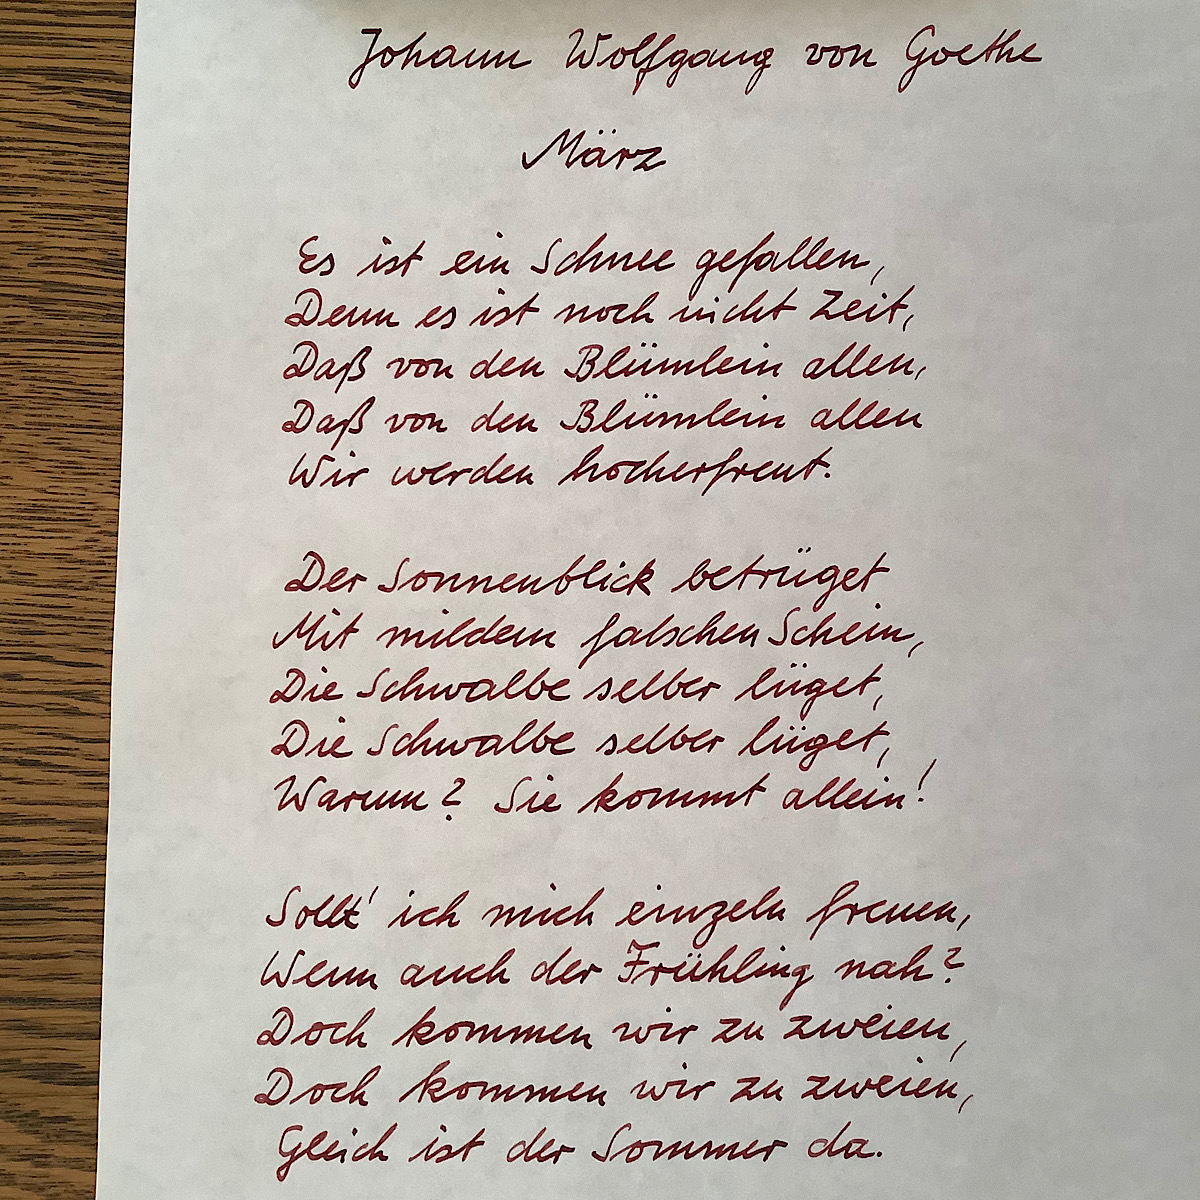 Johann Wolfgang von Goethe
März
Es ist ein Schnee gefallen,
Denn es ist noch nicht Zeit,
Daß von den Blümlein allen,
Daß von den Blümlein allen
Wir werden hocherfreut.
Der Sonnenblick betrüget
Mit mildem falschen Schein,
Die Schwalbe selber lüget,
Die Schwalbe selber lüget,
Warum? Sie kommt allein!
Sollt' ich mich einzeln freuen,
Wenn auch der Frühling nah?
Doch kommen wir zu zweien,
Doch kommen wir zu zweien,
Gleich ist der Sommer da.